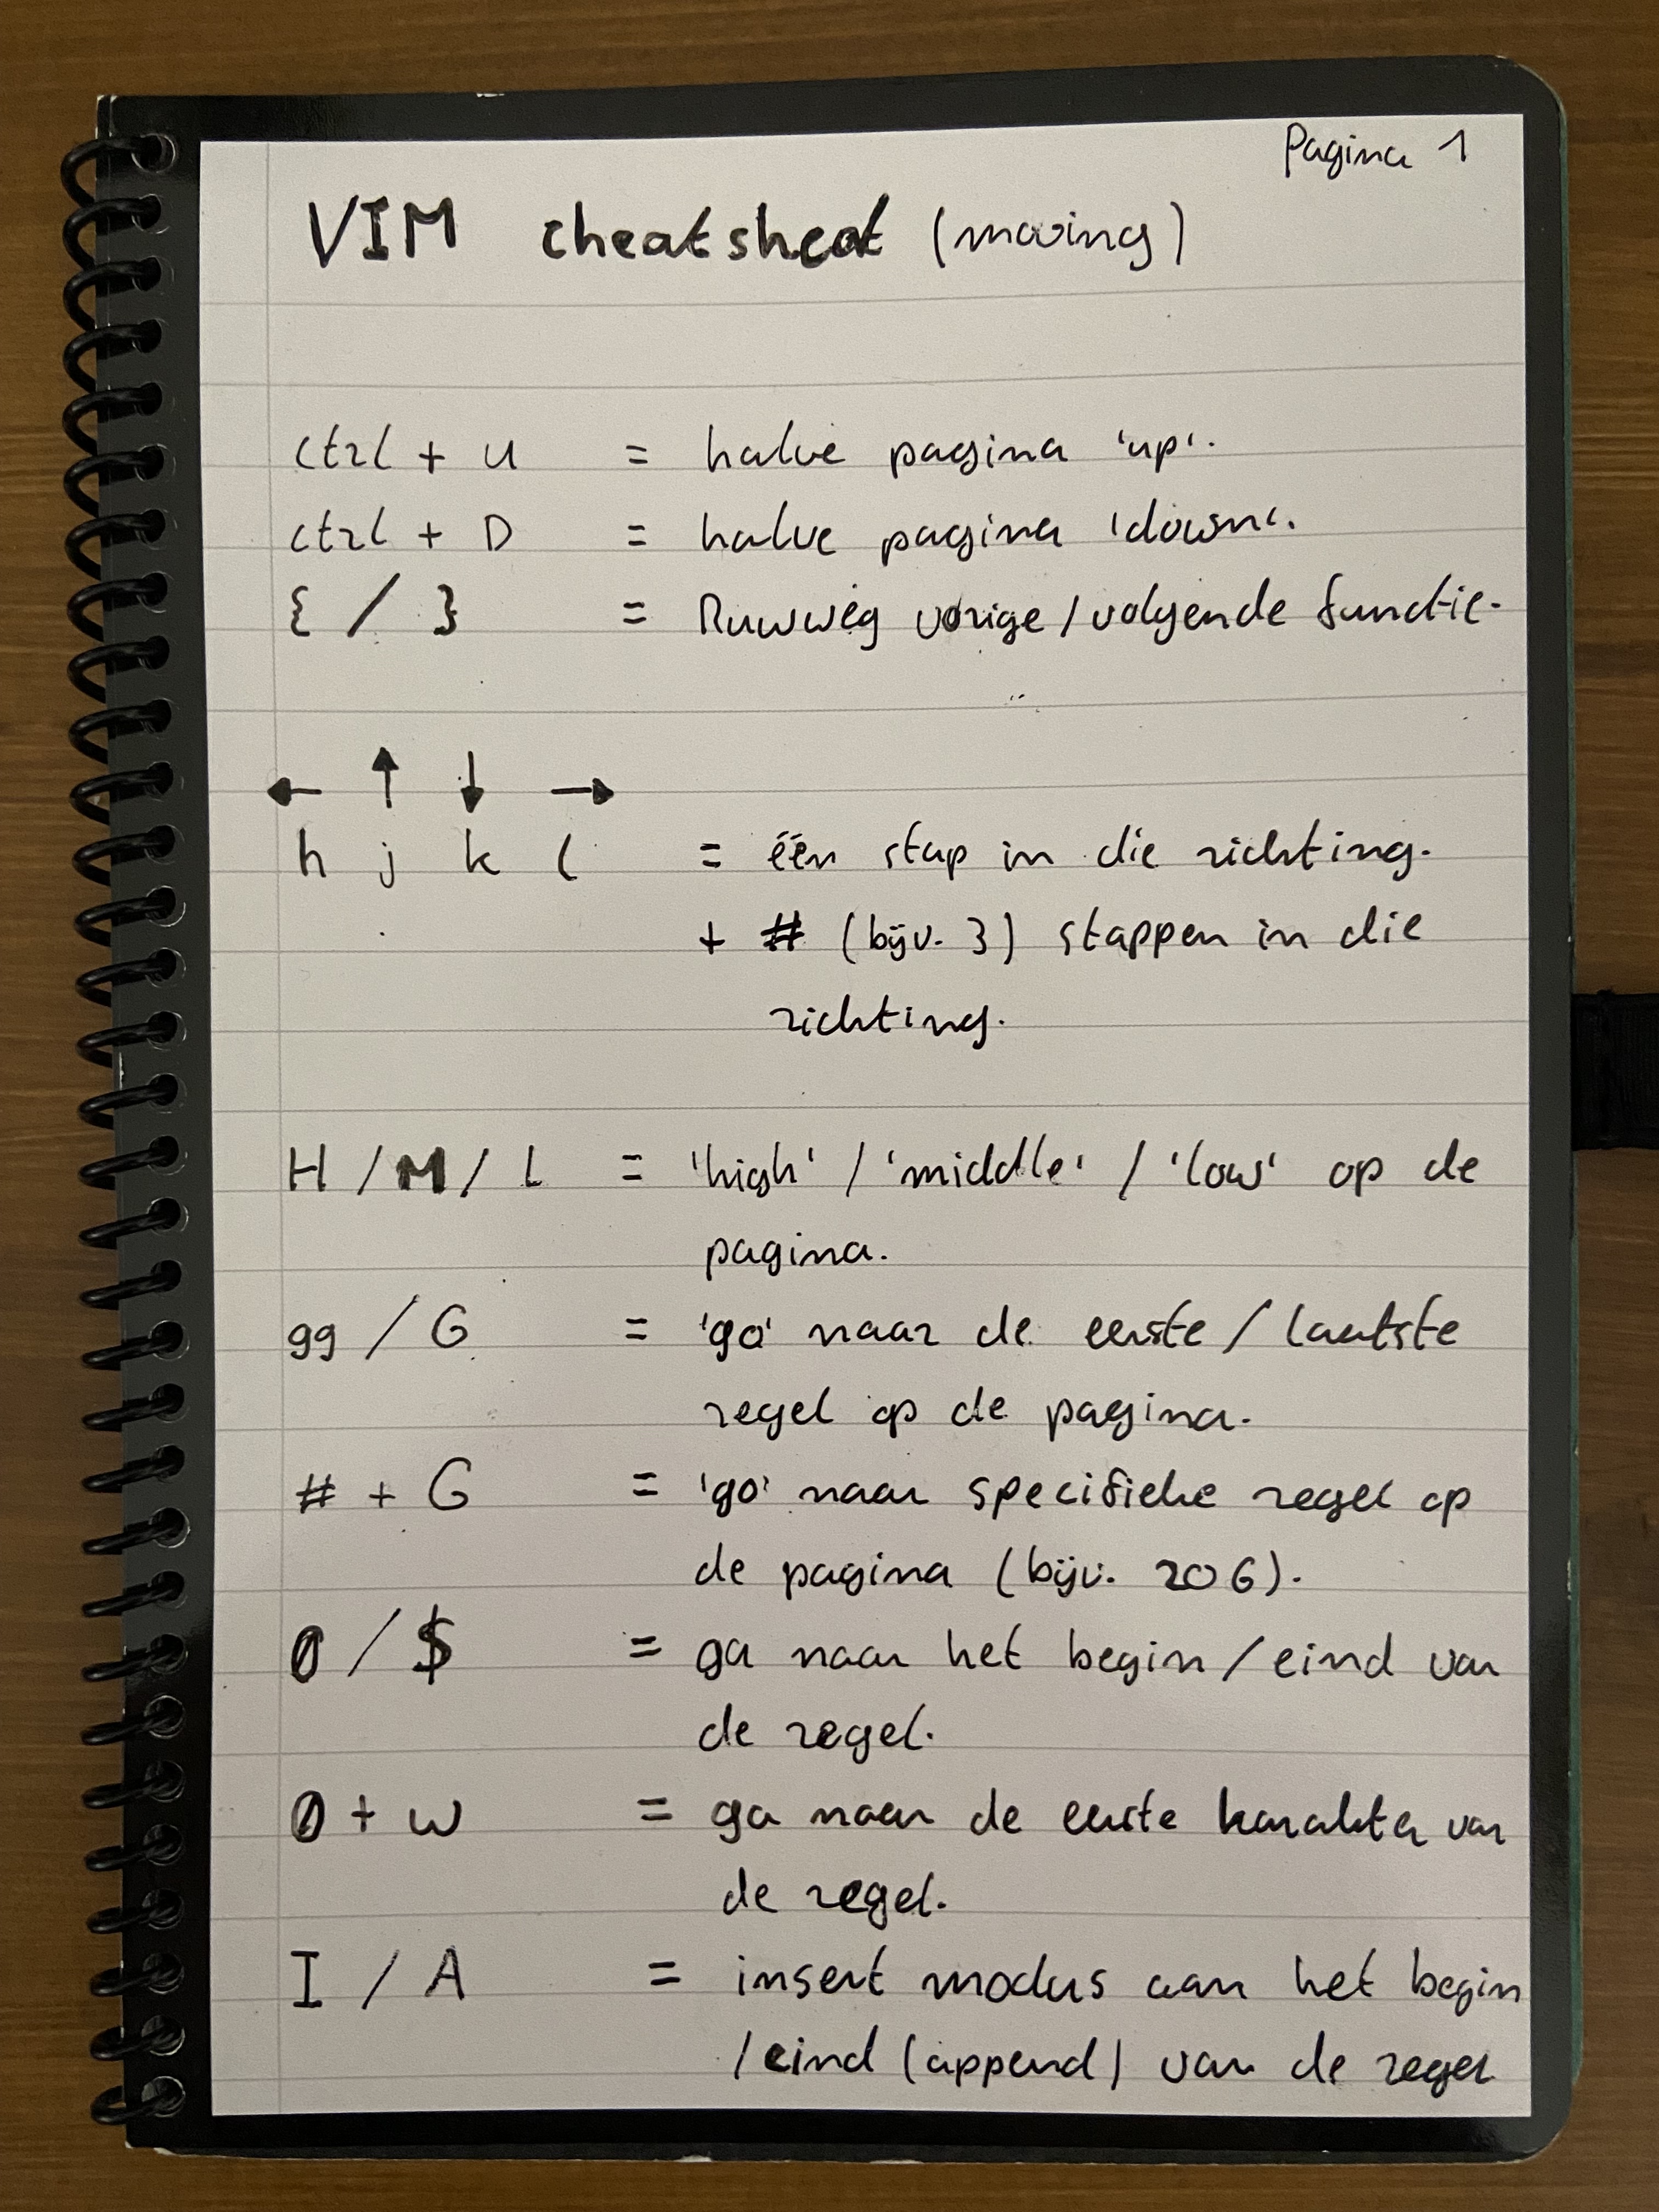 Pagina 1
VIM cheatsheat (moving)
ctrl + U = halve pagina 'up'.
ctrl + D = halve pagina 'down'.
{ / } = Ruwweg vorige / volgende functie.
← ↑ ↓ →
h j k l = één stap in die richting.
+ # (bijv. 3) stappen in die
richting.
H / M / L = 'high' / 'middle' / 'low' op de
pagina.
gg / G = 'go' naar de eerste / laatste
regel op de pagina.
# + G = 'go' naar specifieke regel op
de pagina (bijv. 20G).
0 / $ = ga naar het begin / eind van
de regel.
0 + w = ga naar de eerste karakter van
de regel.
I / A = insert modus aan het begin
/ eind (append) van de regel